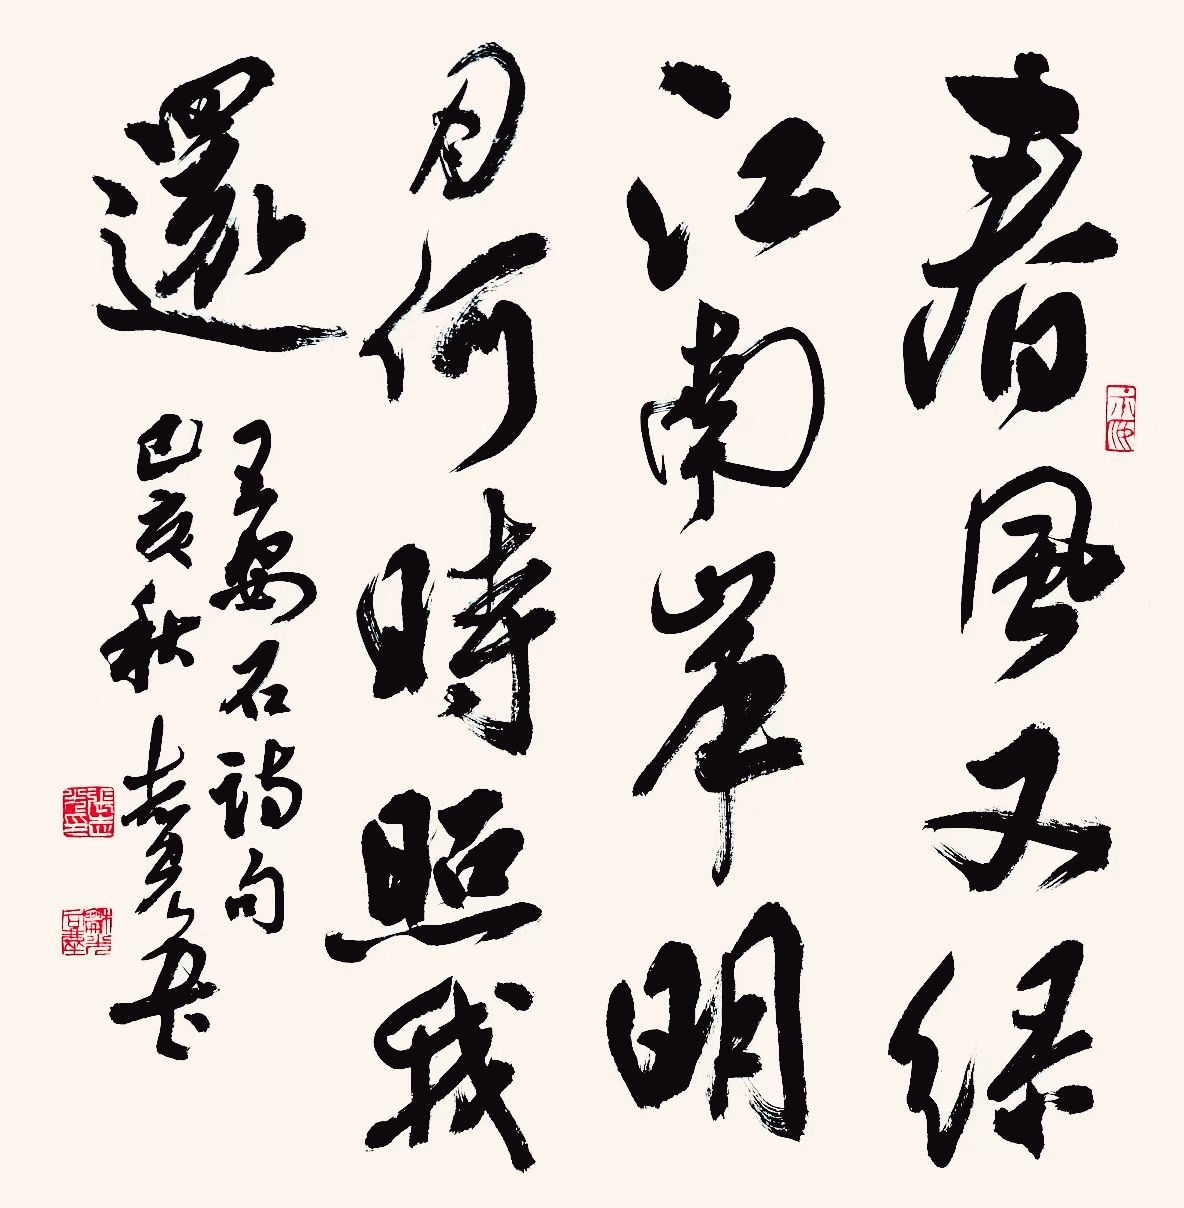 春風又绿
江南岸明
月何時照我
還
王安石詩句
己亥秋志